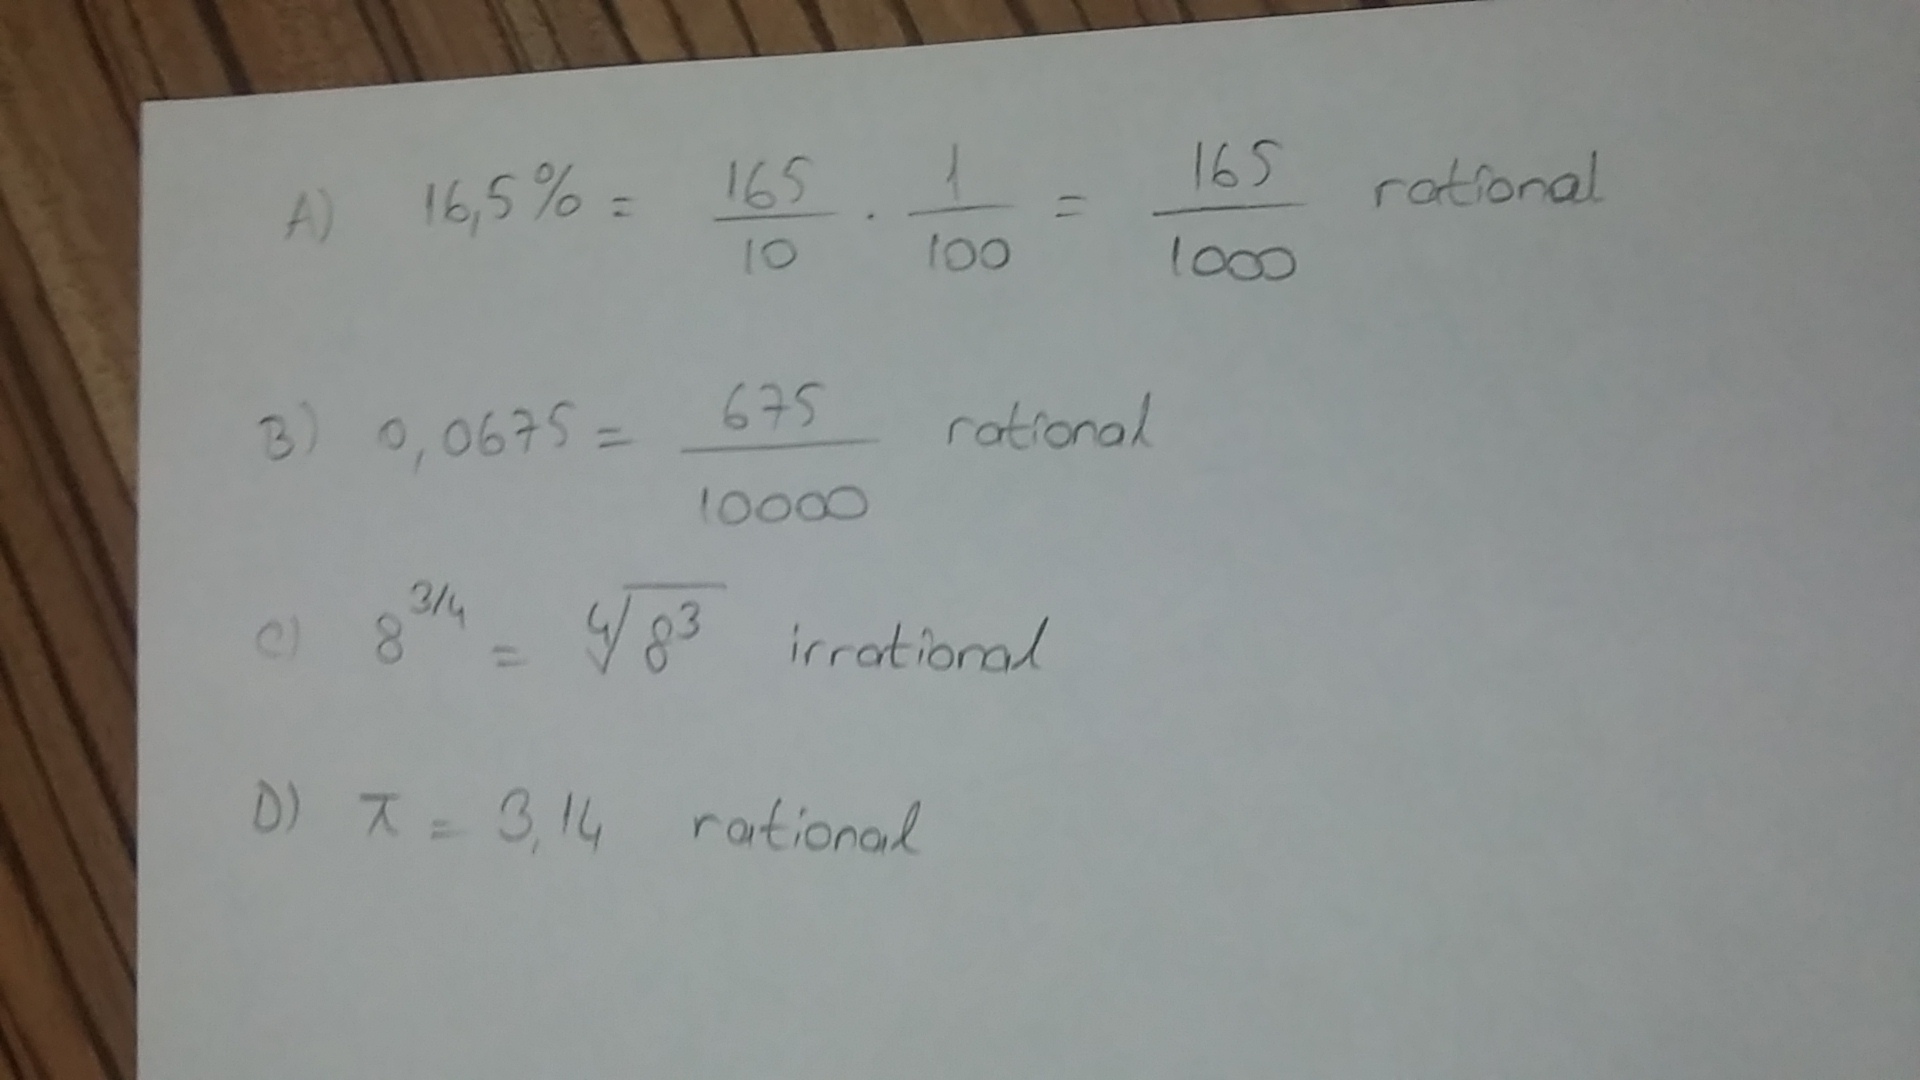 A) 16,5% = 165/10 . 1/100 = 165/1000 rational
B) 0,0675 = 675/10000 rational
C) 8^3/4 = ∜8³ irrational
D) π = 3,14 rational